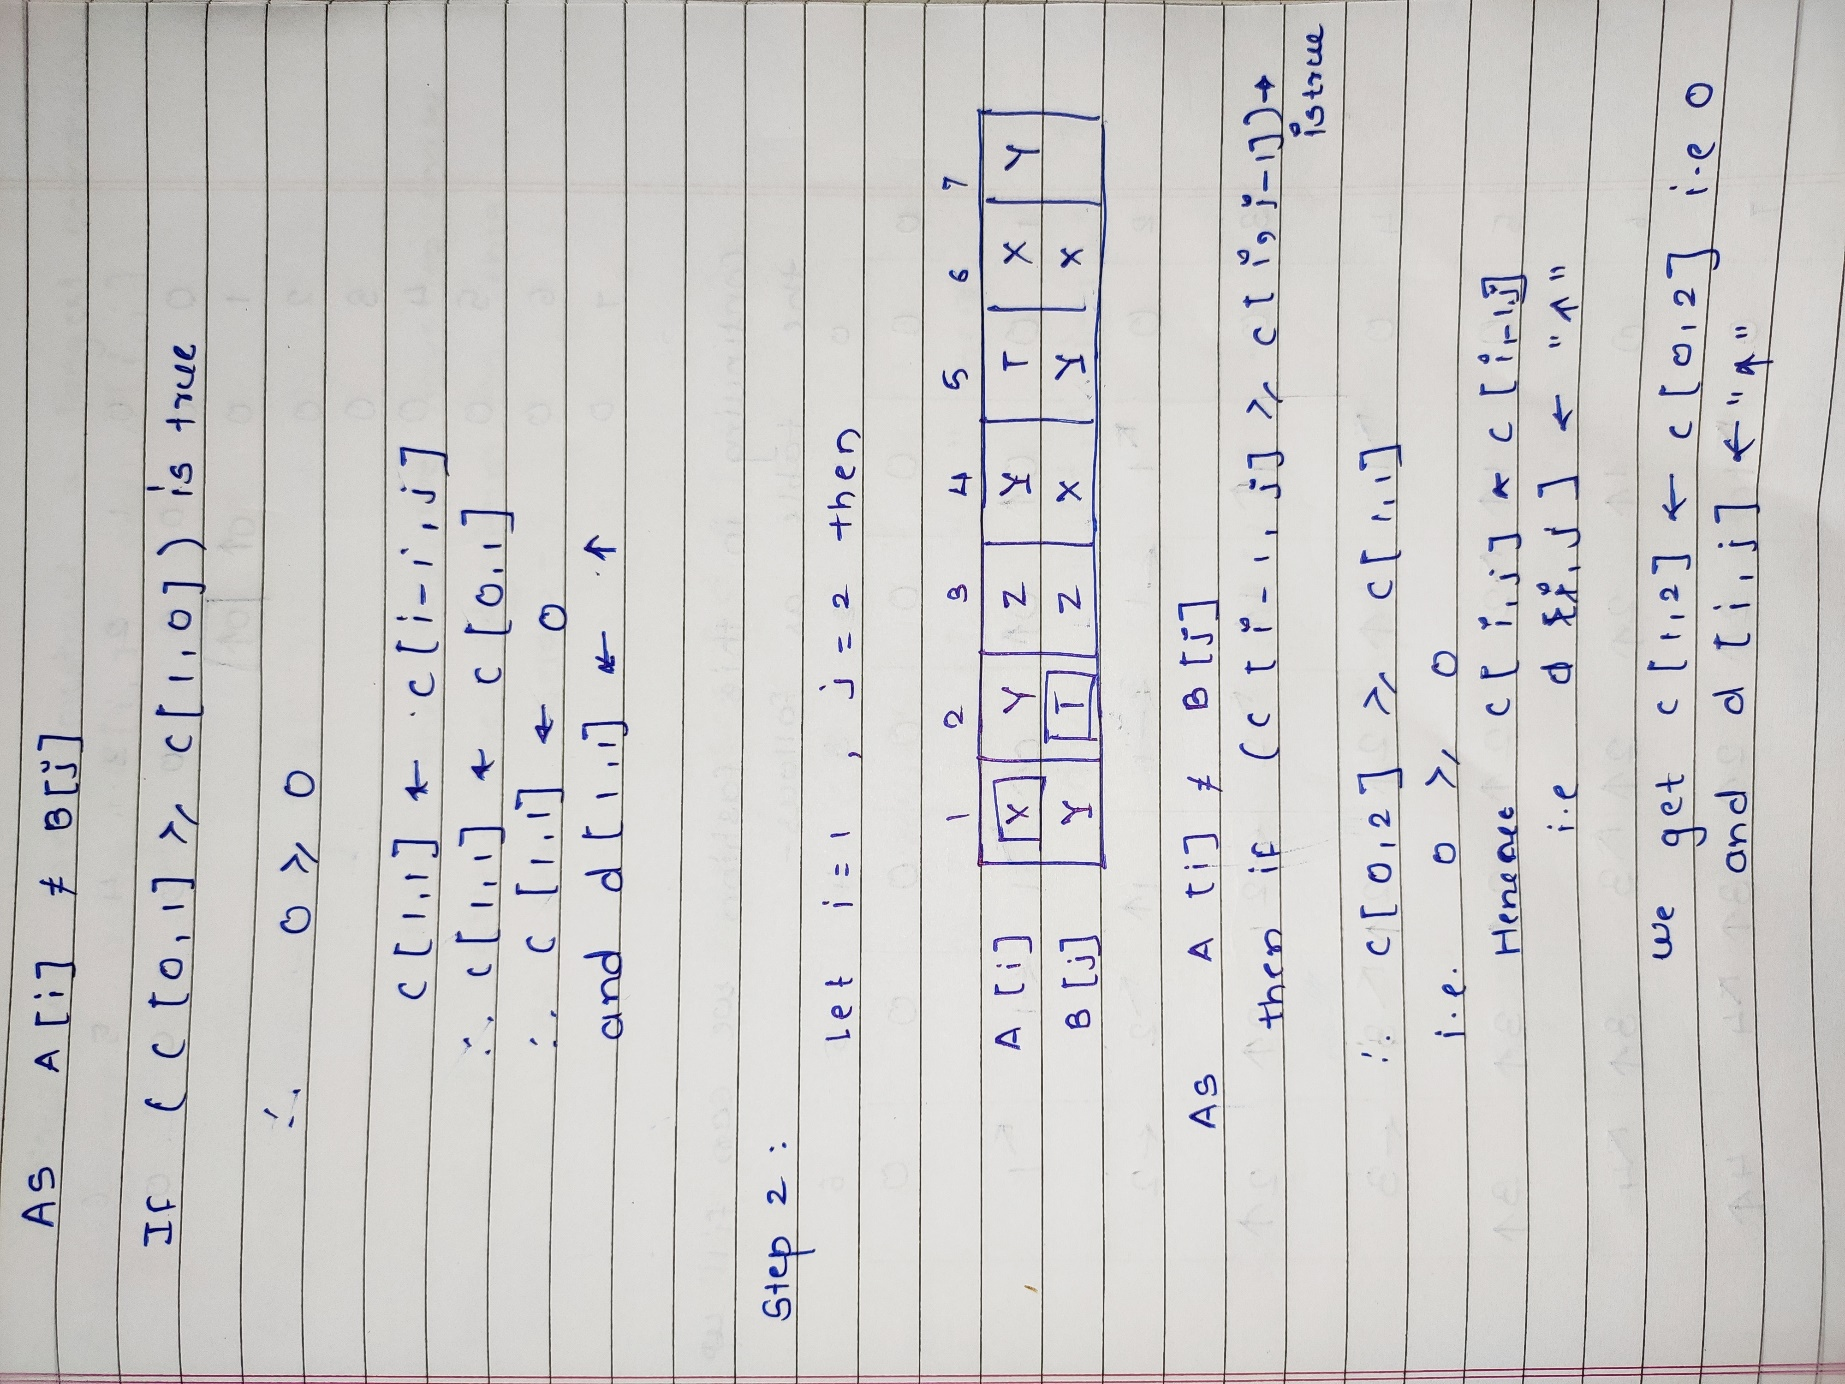 As A[i] ≠ B[j]
If (c[0,1] ⩾ c[1,0]) is true
∴ 0 ⩾ 0
c[1,1] ← c[i-1,j]
∴ c[1,1] ← c[0,1]
∴ c[1,1] ← 0
and d[1,1] ← ↑
Step 2:
Let i=1, j=2 then
1 2 3 4 5 6 7
A[i] X Y Z Y T X Y
B[j] Y T Z X Y X
As A[i] ≠ B[j]
then if (c[i-1,j] ⩾ c[i,j-1]) →
is true
∴ c[0,2] ⩾ c[1,1]
i.e. 0 ⩾ 0
Hence c[i,j] ← c[i-1,j]
i.e d[i,j] ← "↑"
We get c[1,2] ← c[0,2] i.e 0
and d[i,j] ← "↑"